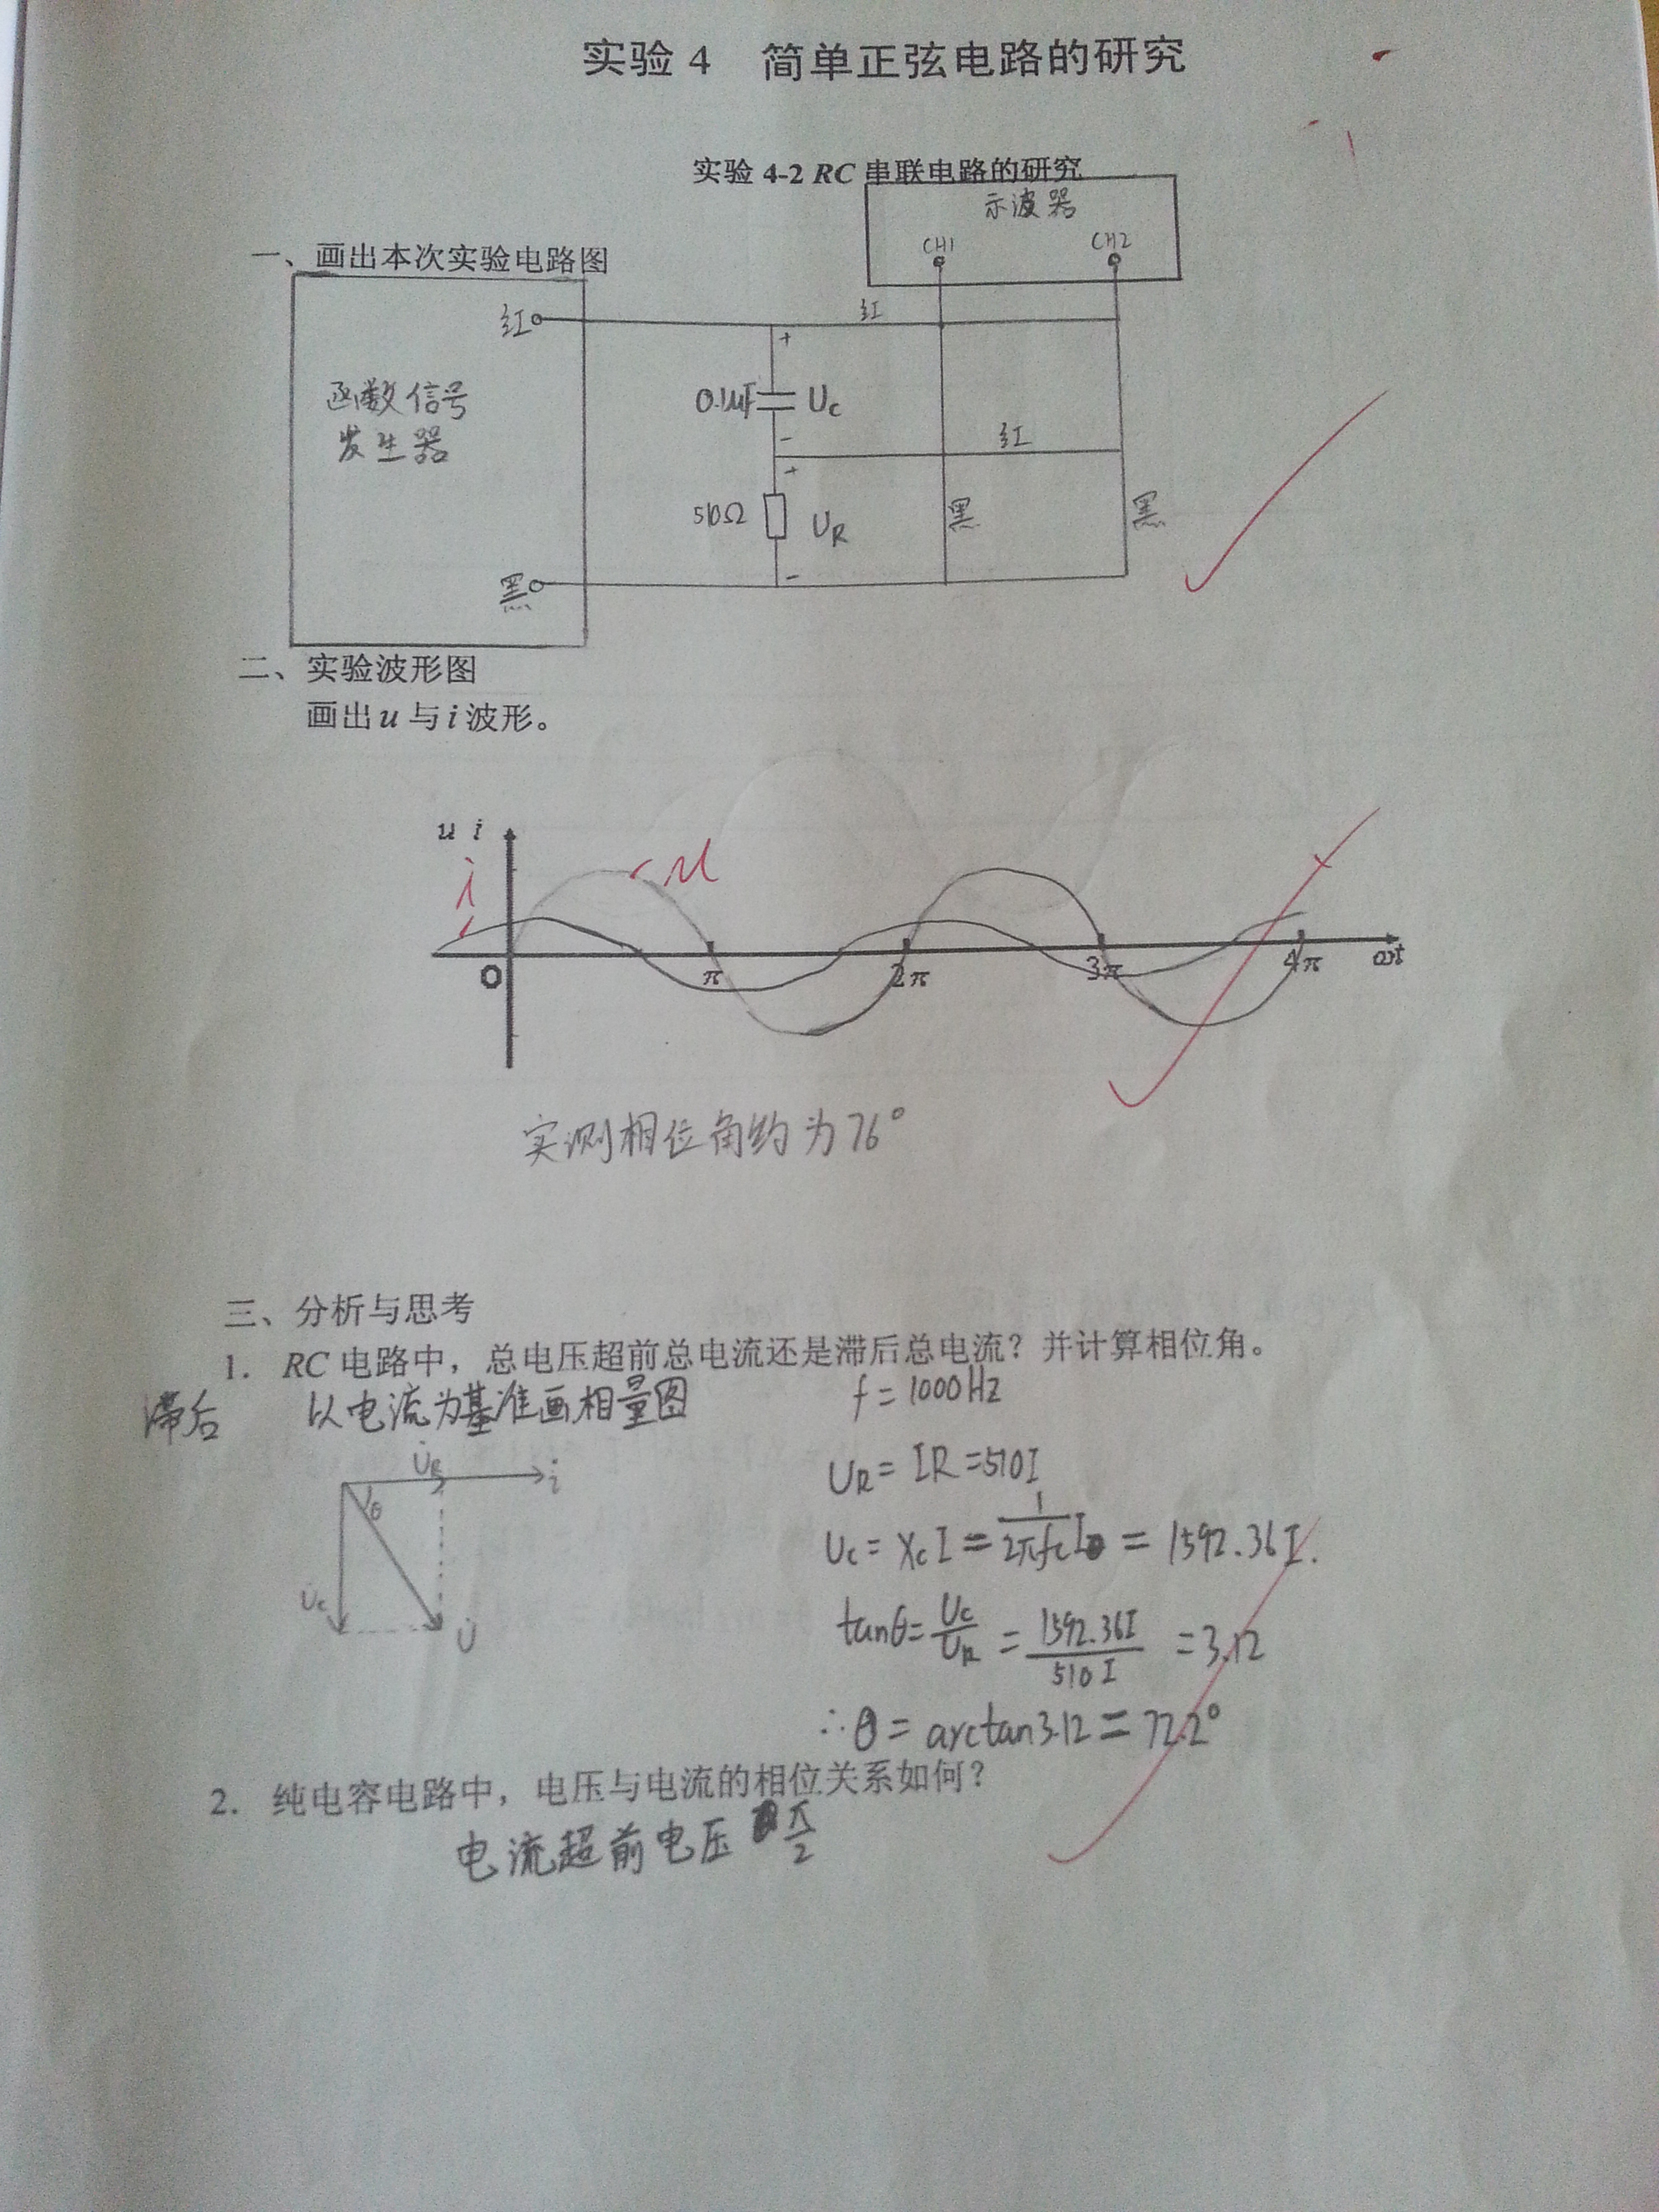 实验 4　简单正弦电路的研究
实验 4-2 RC 串联电路的研究
示波器
CH1 CH2
一、画出本次实验电路图
红
红
函数信号
发生器
+
0.1μF
Uc
-
红
+
510Ω
UR
黑
黑
-
黑
二、实验波形图
画出 u 与 i 波形。
u i
i
u
O π 2π 3π 4π ωt
实测相位角约为76°
三、分析与思考
1. RC 电路中，总电压超前总电流还是滞后总电流？并计算相位角。
滞后 以电流为基准画相量图 f = 1000Hz
U̇R
i̇
θ
U̇c
U̇
UR = IR = 510I
Uc = XcI = 1/2πfc I = 1592.36I.
tanθ = Uc/UR = 1592.36I/510I = 3.12
∴ θ = arctan3.12 = 72.2°
2. 纯电容电路中，电压与电流的相位关系如何？
电流超前电压 π/2